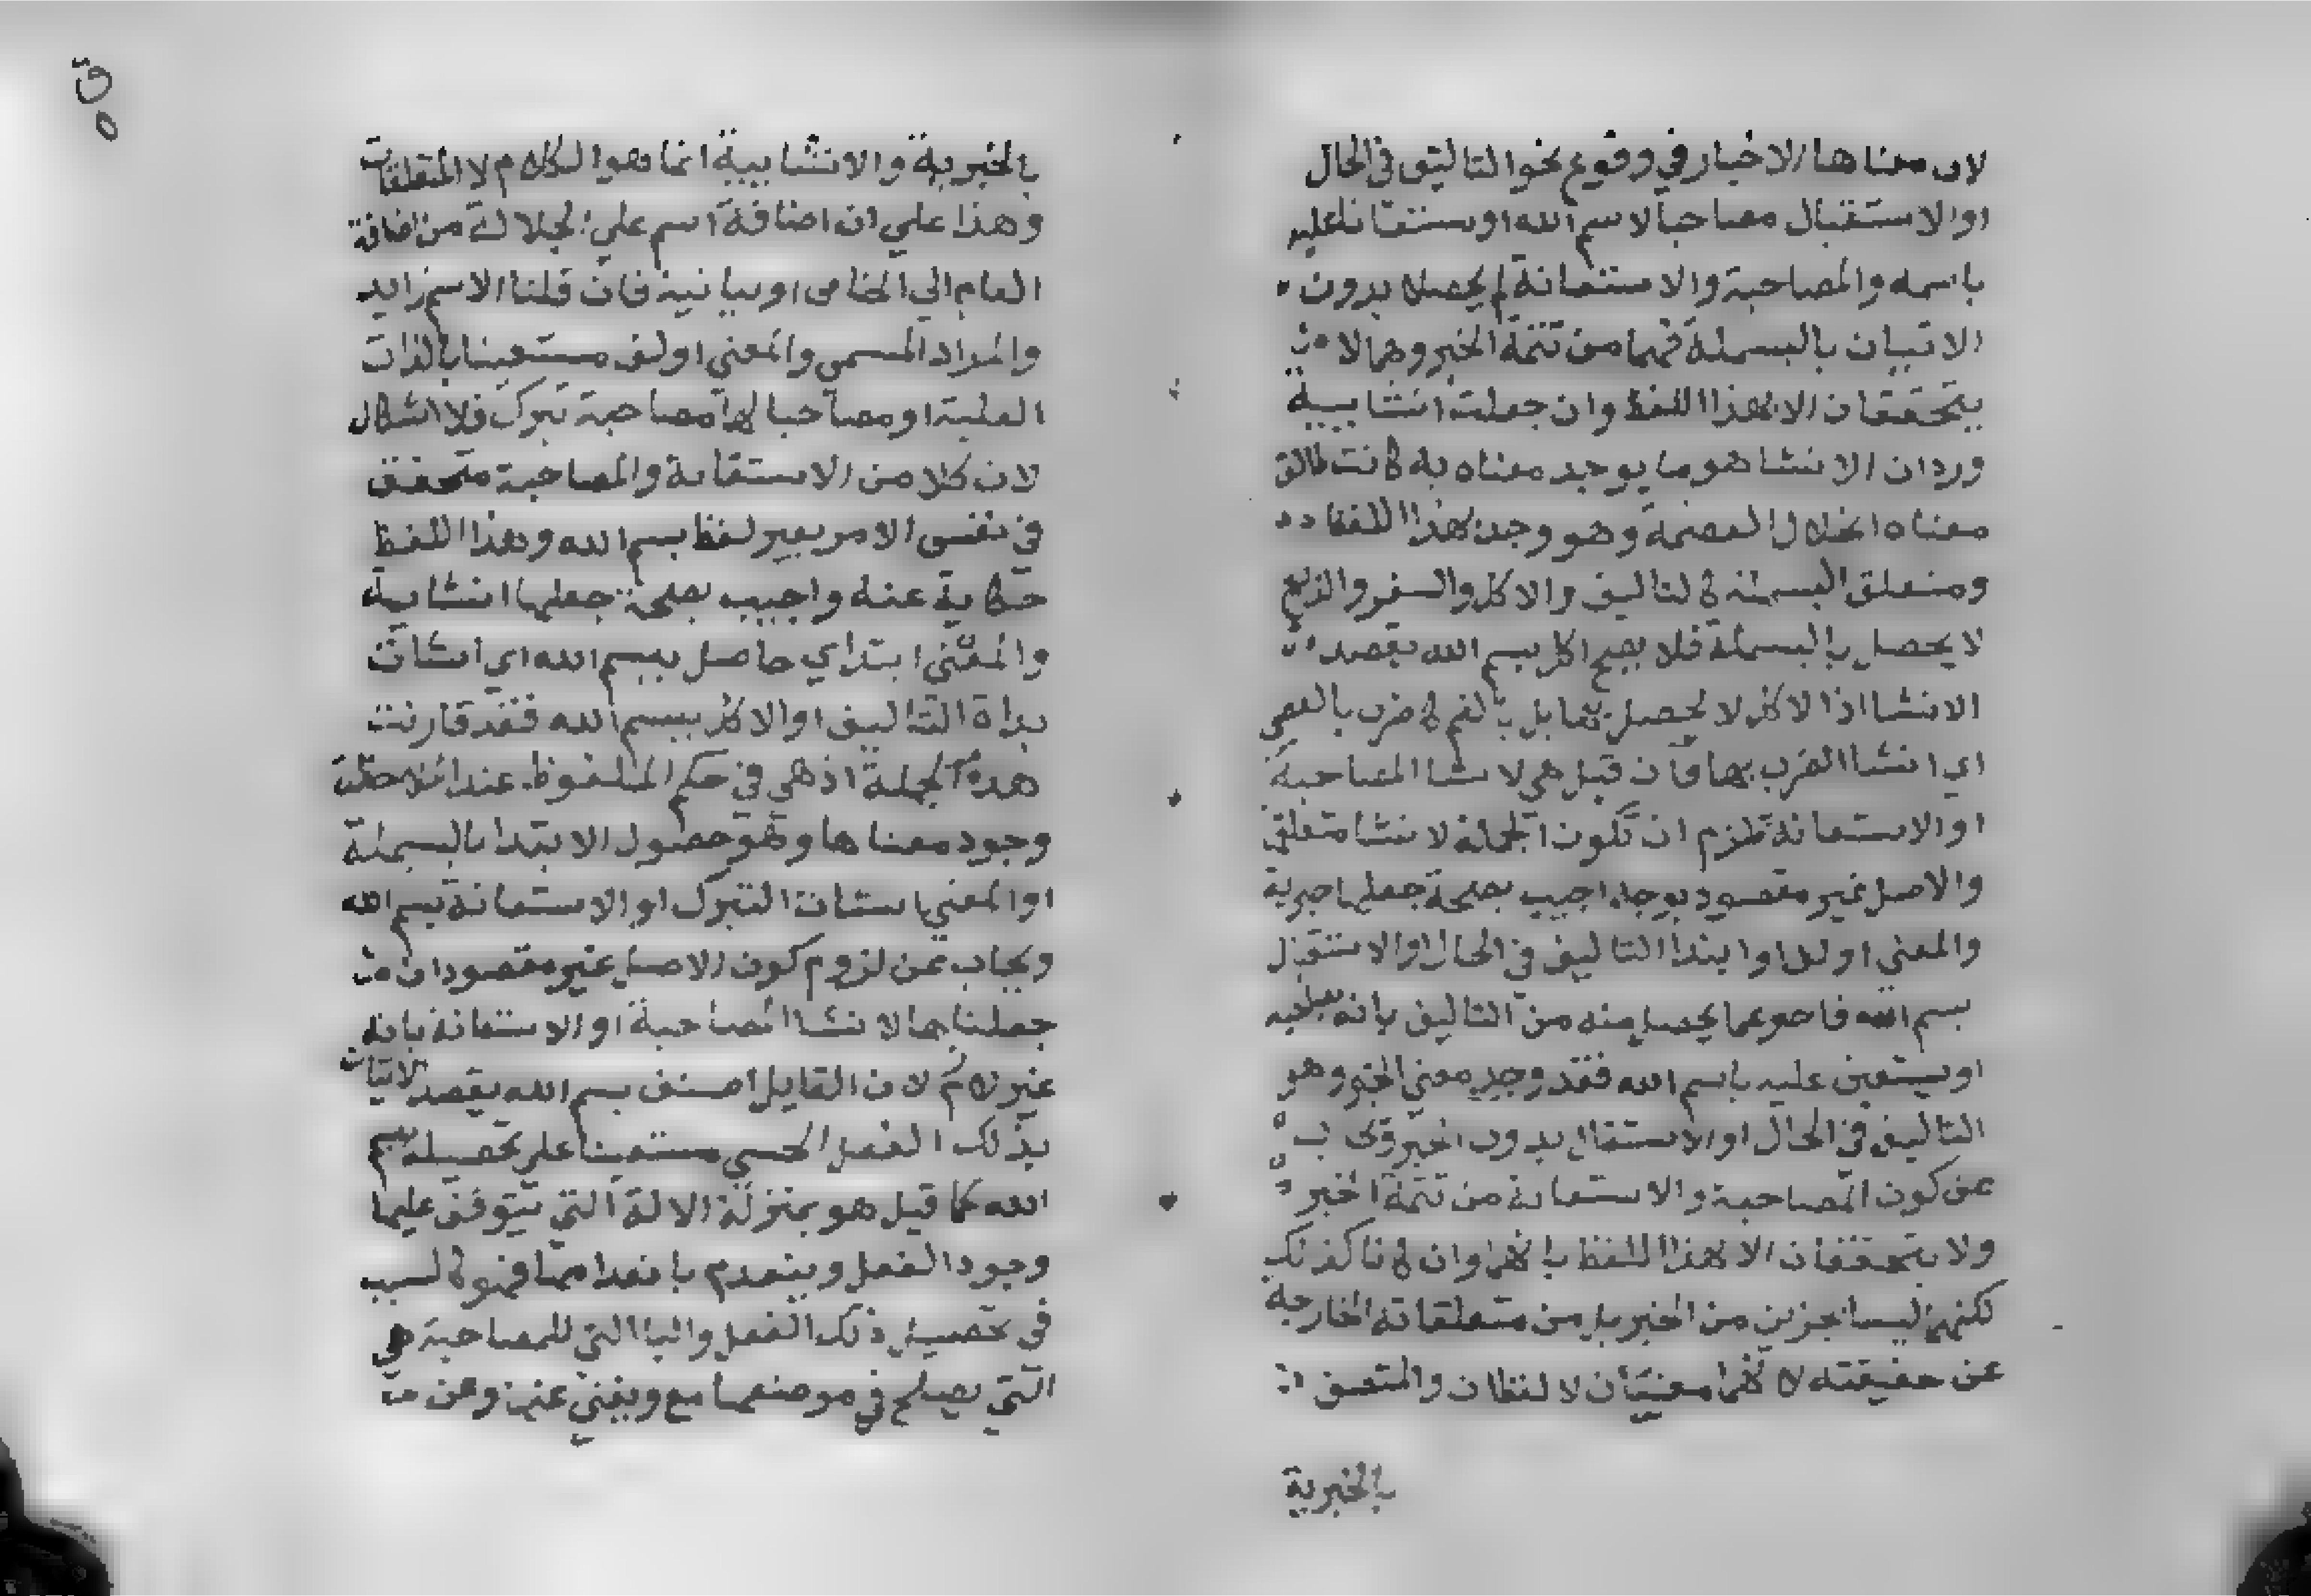 لان معناها الاخبار في وقوع نحو التاليق في الحال
او الاستقبال مصاحبا لاسم الله او مستعانا عليه
باسمه والمصاحبة والاستعانة لم يحصلا بدون
الاتيان بالبسملة فهما من تتمة الخبر وهما لا
يتحققان الا بهذا اللفظ وان جعلت انشايية
ورد ان الانشا هو ما يوجد معناه به كانت طالق
معناه انحلال العصمة وهو وجد بهذا اللفظ
ومتعلق البسملة كالتاليف والاكل والسفر والذبح
لا يحصل بالبسملة فلا يصح اكل بسم الله بقصد
الانشا اذ الاكل لا يحصل بها بل بالفم كاضرب بالعصي
اي انشا الضرب بها فان قيل هي لانشا المصاحبة
او الاستعانة لزم ان تكون الجملة لانشا متعلق
والاصل غير مقصود بوجه اجيب بصحة جعلها خبرية
والمعني اولف او ابتدا التاليف في الحال او الاستقبال
بسم الله فاصوعما يحصل منه من التاليف بانه
او يستعين عليه باسم الله فقد وجد معني الخبر وهو
التاليف في الحال او الاستقبال بدون اخبر وقى ب
عن كون المصاحبة والاستعانة من تتمة الخبر
ولا يتحققان الا بهذا اللفظ بانهما وان كانا كذلك
لكنهما ليسا بجزين من الخبر بل من متعلقاته الخارجة
عن حقيقته لانهما معنيان لا لفظان والمتصف
بالخبرية
ق
٥
بالخبرية والانشايية انما هو الكلام لا المتعلقات
وهذا علي ان اضافة اسم علي الجلالة من اضافة
العام الي الخاص او بيانية فان قلنا الاسم زايد
والمراد المسمي والمعني اولف مستعينا بالذات
العلية او مصاحبا لها مصاحبة تبرك فلا اشكال
لان كلا من الاستعانة والمصاحبة متحقق
في نفس الامر بغير لفظ بسم الله وهذا اللفظ
حكاية عنه واجيب بصحة جعلها انشايية
والمعني ابتداي حاصل ببسم الله اي انشات
بداة التاليف او الاكل ببسم الله فقد قارنت
هذه الجملة اذ هي في حكم الملفوظ عند الملاحظة
وجود معناها وهو حصول الابتدا بالبسملة
او المعني انشات التبرك او الاستعانة ببسم الله
ويجاب عن لزوم كون الاصل غير مقصود ان
جعلناها لانشا المصاحبة او الاستعانة بانه
غير لازم لان القايل اصنف بسم الله يقصد الاتيان
بذلك الفعل الحسي مستعينا علي تحصيله ببسم
الله كما قيل هو بمنزلة الالة التي يتوقف عليها
وجود الفعل وينعدم بانعدامها فهو كالسبب
في تحصيل ذلك الفعل والبا التي للمصاحبة هي
التي يصلح في موضعها مع ويغني عنها وعن